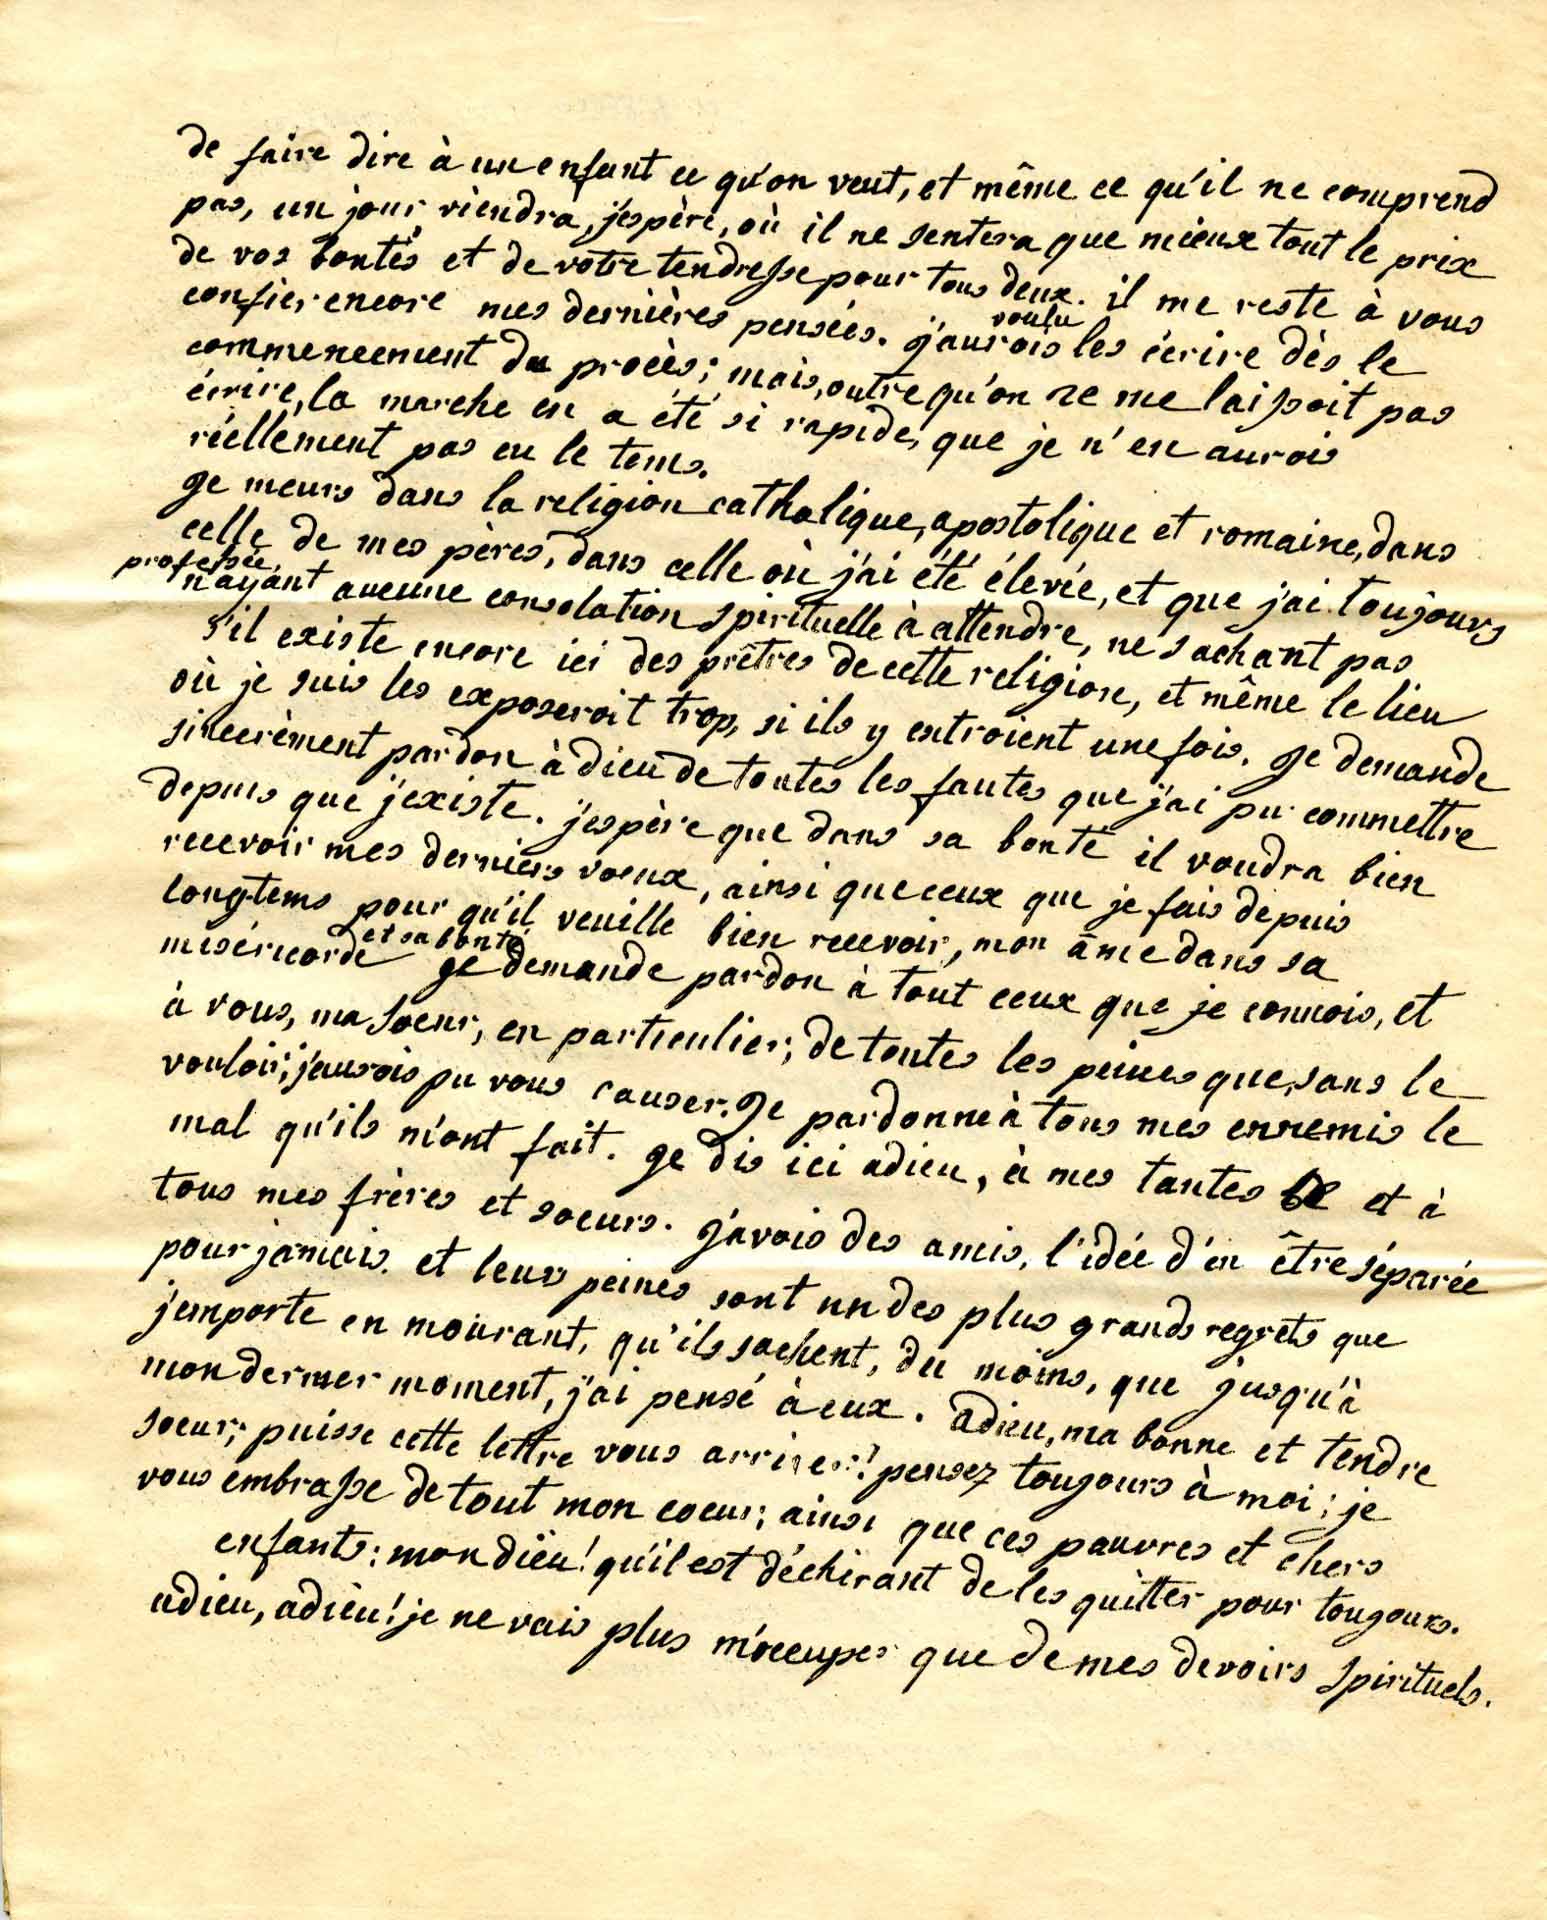 de faire dire à un enfant ce qu'on veut, et même ce qu'il ne comprend
pas, un jour viendra, j'espère, où il ne sentera que mieux tout le prix
de vos bontés et de votre tendresse pour tous deux. il me reste à vous
confier encore mes dernières pensées. j'aurois voulu les écrire dès le
commencement du procès; mais, outre qu'on ne me laissoit pas
écrire, la marche en a été si rapide, que je n'en aurois
réellement pas eu le tems.
Je meurs dans la religion catholique, apostolique et romaine, dans
celle de mes pères, dans celle où j'ai été élevée, et que j'ai toujours
professée
n'ayant aucune consolation spirituelle à attendre, ne sachant pas
s'il existe encore ici des prêtres de cette religion, et même le lieu
où je suis les exposeroit trop, si ils y entroient une fois. Je demande
sincèrement pardon à dieu de toutes les fautes que j'ai pu commettre
depuis que j'existe. j'espère que dans sa bonté il voudra bien
recevoir mes derniers voeux, ainsi que ceux que je fais depuis
longtems pour qu'il veuille bien recevoir, mon âme dans sa
miséricorde et sa bonté. Je demande pardon à tout ceux que je connois, et
à vous, ma soeur, en particulier; de toutes les peines que, sans le
vouloir; j'aurois pu vous causer. Je pardonne à tous mes ennemis le
mal qu'ils m'ont fait. Je dis ici adieu, à mes tantes et à
tous mes frères et soeurs. J'avois des amis, l'idée d'en être séparée
pour jamais. et leurs peines sont un des plus grands regrets que
j'emporte en mourant, qu'ils sachent, du moins, que jusqu'à
mon dernier moment, j'ai pensé à eux. adieu, ma bonne et tendre
soeur; puisse cette lettre vous arriver! pensez toujours à moi; je
vous embrasse de tout mon coeur; ainsi que ces pauvres et chers
enfants: mon dieu! qu'il est déchirant de les quitter pour toujours.
adieu, adieu! je ne vais plus m'occuper que de mes devoirs spirituels.